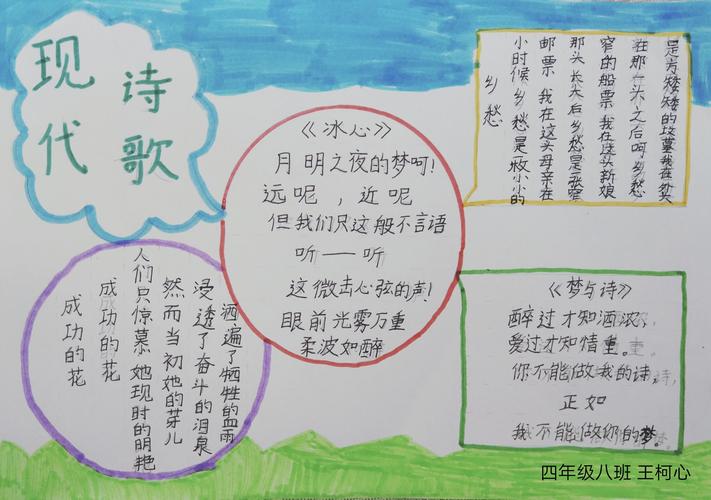 现代
诗歌
《冰心》
月明之夜的梦呵!
远呢,近呢
但我们只这般不言语
听——听
这微击心弦的声!
眼前光雾万重
柔波如醉
乡愁
小时候 乡愁是一枚小小的
邮票 我在这头母亲在
那头 长大后 乡愁是一张窄
窄的船票 我在这头新娘
在那一头 之后呵乡愁
是方矮矮的坟墓我在外头
成功的花
成功的花
人们只惊慕她现时的明艳
然而当初她的芽儿
浸透了奋斗的泪泉
洒遍了牺牲的血雨
《梦与诗》
醉过才知酒浓
爱过才知情重。
你不能做我的诗,
正如
我不能做你的梦。
四年级八班 王柯心